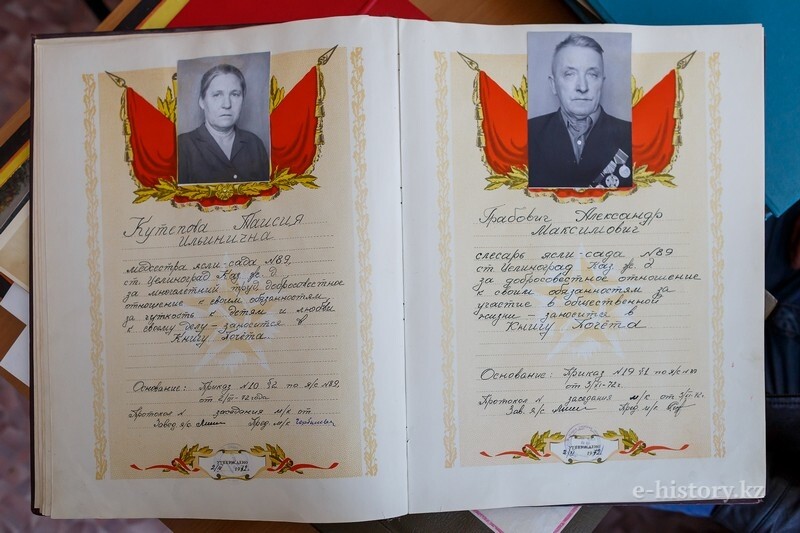 Кутепова Таисия
Ильинична
медсестра ясли-сада №89,
ст. Целиноград Каз ж. д
за многолетний труд, добросовестное
отношение к своим обязанностям,
за чуткость к детям и любовь
к своему делу – заносится в
Книгу Почёта.
Основание: Приказ №10 §2 по я/с №89.
от 2/VI-72 года
Протокол № заседания м/к от
Завод я/с Пред. м/к
УТВЕРЖДЕНО
1972
Грабович Александр
Максимович
слесарь ясли-сада №89
ст. Целиноград Каз ж. д
за добросовестное отношение
к своим обязанностям за
участие в общественной
жизни – заносится в
Книгу Почёта
Основание: Приказ №19 §1 по я/с
от 3/VI-72г.
Протокол № заседания м/к от 3/VI-72г.
Зав. я/с Пред. м/к
УТВЕРЖДЕНО
1972
e-history.kz